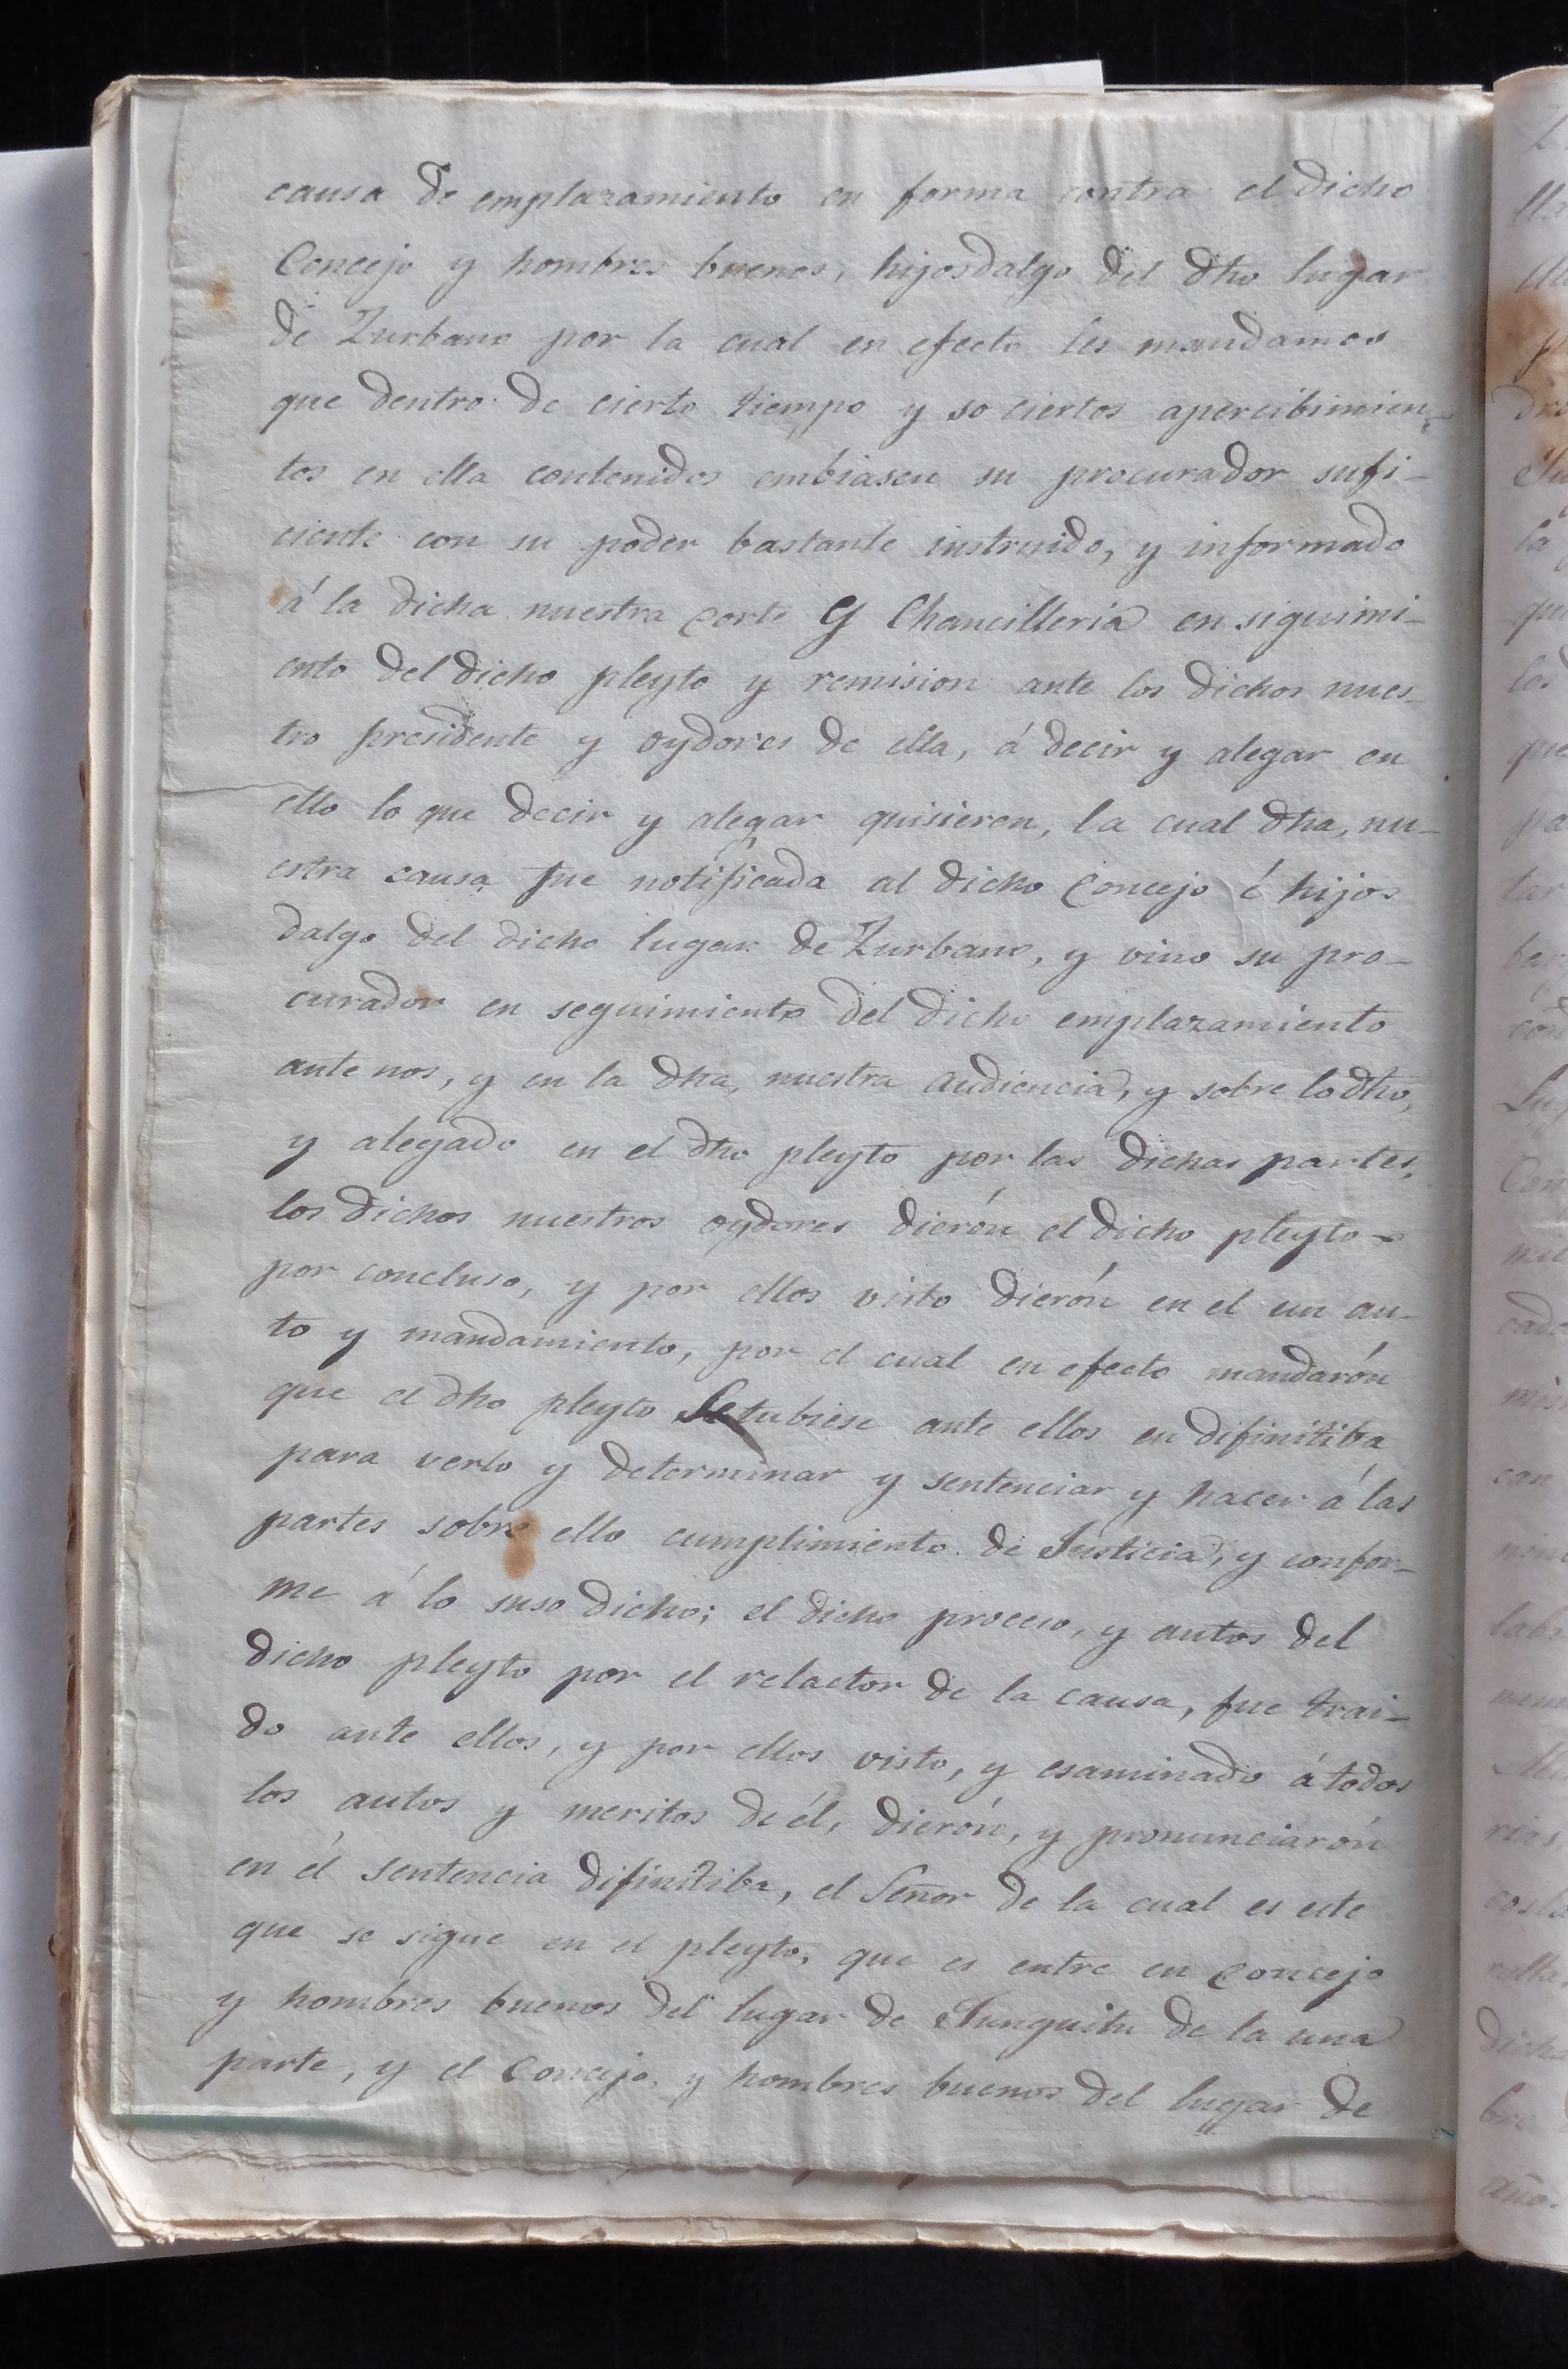 causa de emplazamiento en forma contra el dicho
Concejo y hombres buenos, hijosdalgo del dho lugar
de Zurbano por la cual en efecto les mandamos
que dentro de cierto tiempo y so ciertos apercibimien-
tos en ella contenidos embiasen su procurador sufi-
ciente con su poder bastante instruido, y informado
á la dicha nuestra corte y Chancilleria en siguimi-
ento del dicho pleyto y remision ante los dichos nues-
tro presidente y oydores de ella, á decir y alegar en
ello lo que decir y alegar quisieren, la cual dha, nu-
estra causa fue notificada al dicho Concejo é hijos
dalgo del dicho lugar de Zurbano, y vino su pro-
curador en seguimiento del dicho emplazamiento
ante nos, y en la dha, nuestra audiencia, y sobre lo dho,
y alegado en el dho pleyto por las dichas partes,
los dichos nuestros oydores dierón el dicho pleyto
por concluso, y por ellos visto dierón en el un au-
to y mandamiento, por el cual en efecto mandarón
que el dho pleyto se tubiese ante ellos en difinitiba
para verlo y determinar y sentenciar y hacer á las
partes sobre ello cumplimiento de Justicia, y confor-
me á lo suso dicho; el dicho proceso, y autos del
dicho pleyto por el relactor de la causa, fue trai-
do ante ellos, y por ellos visto, y esaminado á todos
los autos y meritos de él, dierón, y pronunciarón
en él sentencia difinitiba, el Señor de la cual es este
que se sigue en el pleyto, que es entre en Concejo
y hombres buenos del lugar de Junguitu de la una
parte, y el Concejo y hombres buenos del lugar de